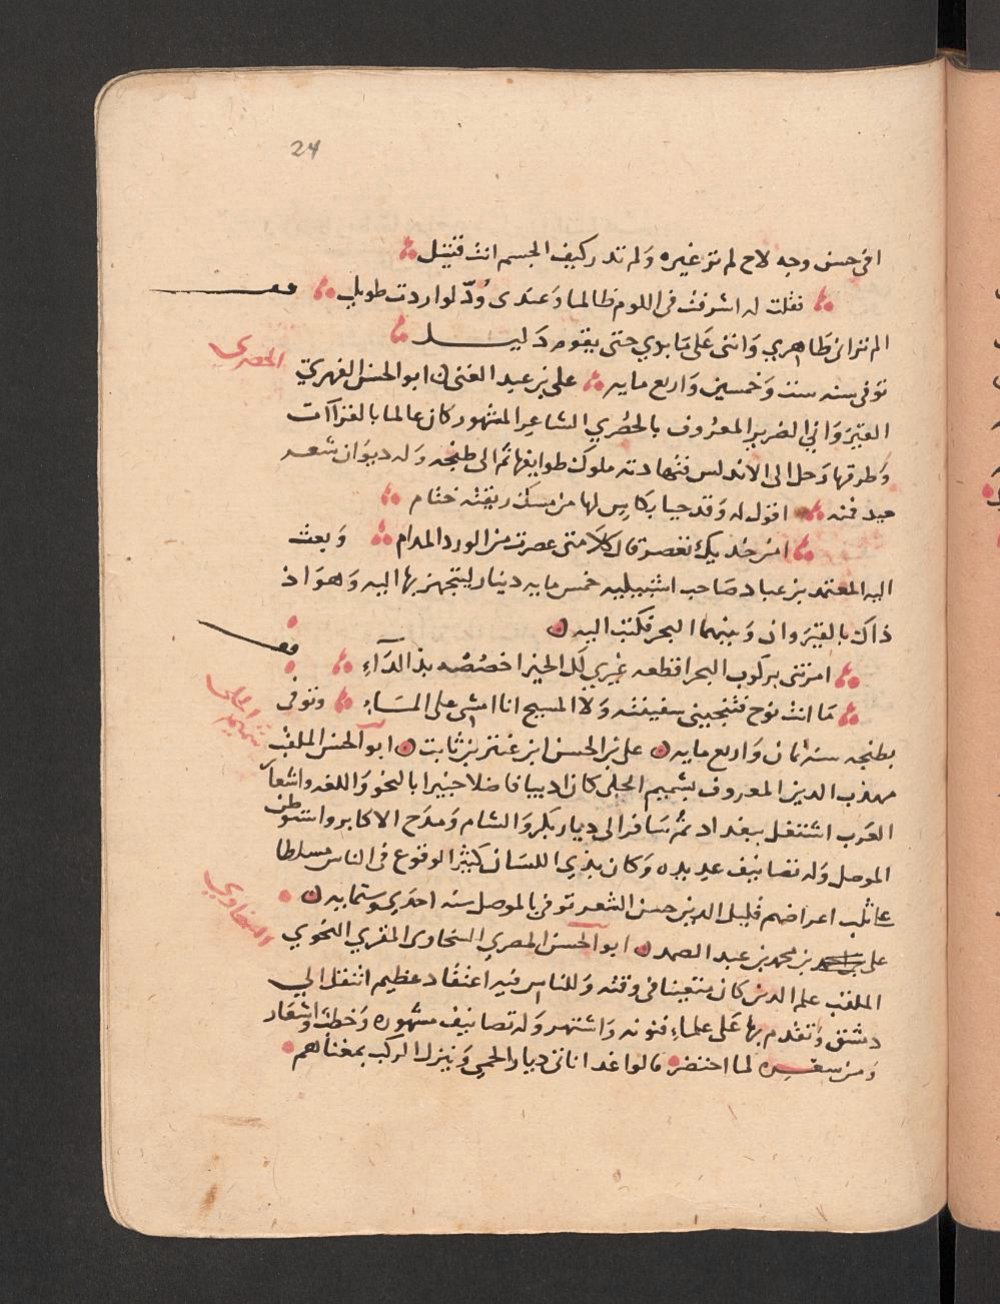 24
افى حسن وجه لاح لم تر غيره ولم تدر كيف الجسم انت قتيل
فقلت له اشرفت فى اللوم ظالما وعندى ودّ لو اردت طويل
الم ترانى ظاهري واننى على ما بدي حتى يقوم دليل
الحصري
توفى سنه ست وخمسين واربع مايه على بن عبد الغنى ابو الحسن الفهري
القيرواني الضرير المعروف بالحصري الشاعر المشهور كان عالما بالقراآت
وطرقها دخل الى الاندلس فتهادته ملوك طوايفها ثم الى طنجه وله ديوان شعر
فمنه اقول له وقد حيا بكاس لها من مسك ريقته ختام
امن خديك تعصر قال كلا متى عصرت من الورد المدام وبعث
اليه المعتمد بن عباد صاحب اشبيليه خمس مايه دينار ليتجهز بها اليه وهو اذ
ذاك بالقيروان وبينهما البحر فكتب اليه
امرتنى بركوب البحر اقطعه غيري لك الخير اخصصه بذ الدآء
ما انت نوح فتنجينى سفينته ولا المسيح انا امشى على الماء وتوفى
شميم الحلى
بطنجه سنه ثمان واربع مايه على بن الحسن ابن عنتر بن ثابت ابو الحسن الملقب
مهذب الدين المعروف بشميم الحلى كان اديبا فاضلا خبيرا بالنحو واللغه واشعار
العرب اشتغل ببغداد ثم سافر الى ديار بكر والشام ومدح الاكابر واستوطن
الموصل وله تصانيف عديده وكان بذى اللسان كثير الوقوع فى الناس مسلطا
على ثلب اعراضهم قليل الدين حسن الشعر توفى بالموصل سنه احدي وستمايه
السخاوي
على بن محمد بن عبد الصمد ابو الحسن المصري السخاوى المقري النحوي
الملقب علم الدين كان متعينا فى وقته وللناس فيه اعتقاد عظيم انتقل الى
دمشق وتقدم بها على علماء فنونه واشتهر وله تصانيف مشهوره وخطب واشعار
ومن شعره لما احتضر قالوا غدا ناتى ديار الحمي وينزل الركب بمغناهم